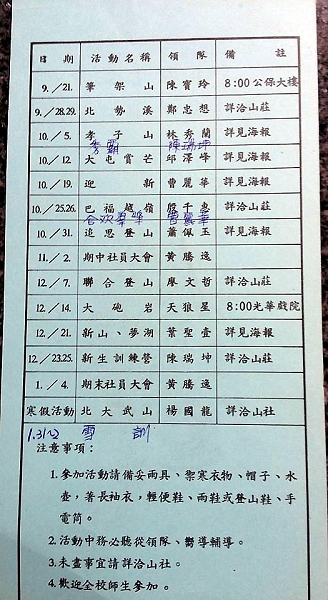 日 期 活動名稱 領 隊 備 註
9．/21. 筆架山 陳寶玲 8:00公保大樓
9．/28.29. 北勢溪 鄭忠想 詳洽山莊
10．/5. 孝子山 林秀蘭 詳見海報
秀霸 陳瑞坤
10．/12 大屯賞芒 邱澤峰 詳見海報
10．/19. 迎新 曹麗華 詳見海報
10．/25.26. 巴福越嶺 殷千惠 詳洽山莊
合歡群峰 曹麗華
10．/31. 追思登山 蕭佩玉 詳見海報
11．/2. 期中社員大會 黃騰逸
12．/7. 聯合登山 廖文哲 詳洽山莊
12．/14. 大砲岩 天狼星 8:00光華戲院
12．/21. 新山、夢湖 葉聖壹 詳見海報
12．/23.25. 新生訓練營 陳瑞坤 詳洽山莊
1．/4. 期末社員大會 黃騰逸
寒假活動 北大武山 楊國龍 詳洽山社
1.31~2 雪訓
注意事項：
1.參加活動請備妥雨具、禦寒衣物、帽子、水
壺，著長袖衣，輕便鞋、雨鞋或登山鞋、手
電筒。
2.活動中務必聽從領隊、嚮導輔導。
3.未盡事宜請詳洽山社。
4.歡迎全校師生參加。